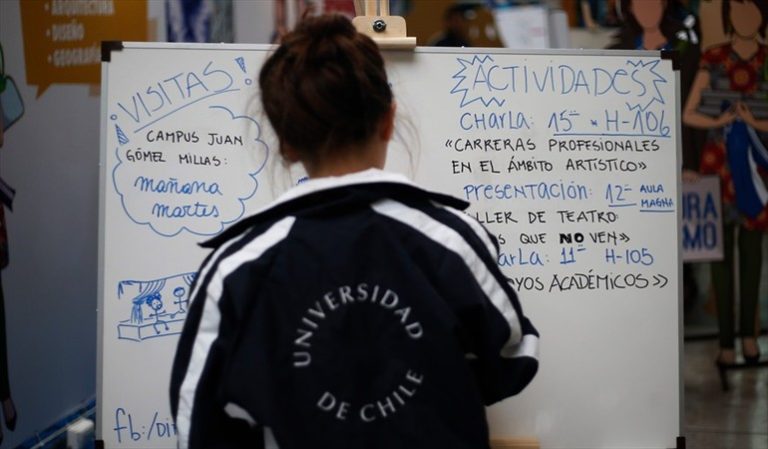 ARQUITECTURA
DISEÑO
GEOGRAFÍA
VISITAS!
CAMPUS JUAN
GÓMEZ MILLAS:
mañana
martes
fb:/
ACTIVIDADES
CHARLA: 15:00 * H-106
«CARRERAS PROFESIONALES
EN EL ÁMBITO ARTÍSTICO»
PRESENTACIÓN: 12:00 AULA
MAGNA
DE TEATRO:
QUE NO VEN»
11:00 H-105
ACADÉMICOS»
UNIVERSIDAD
DE CHILE